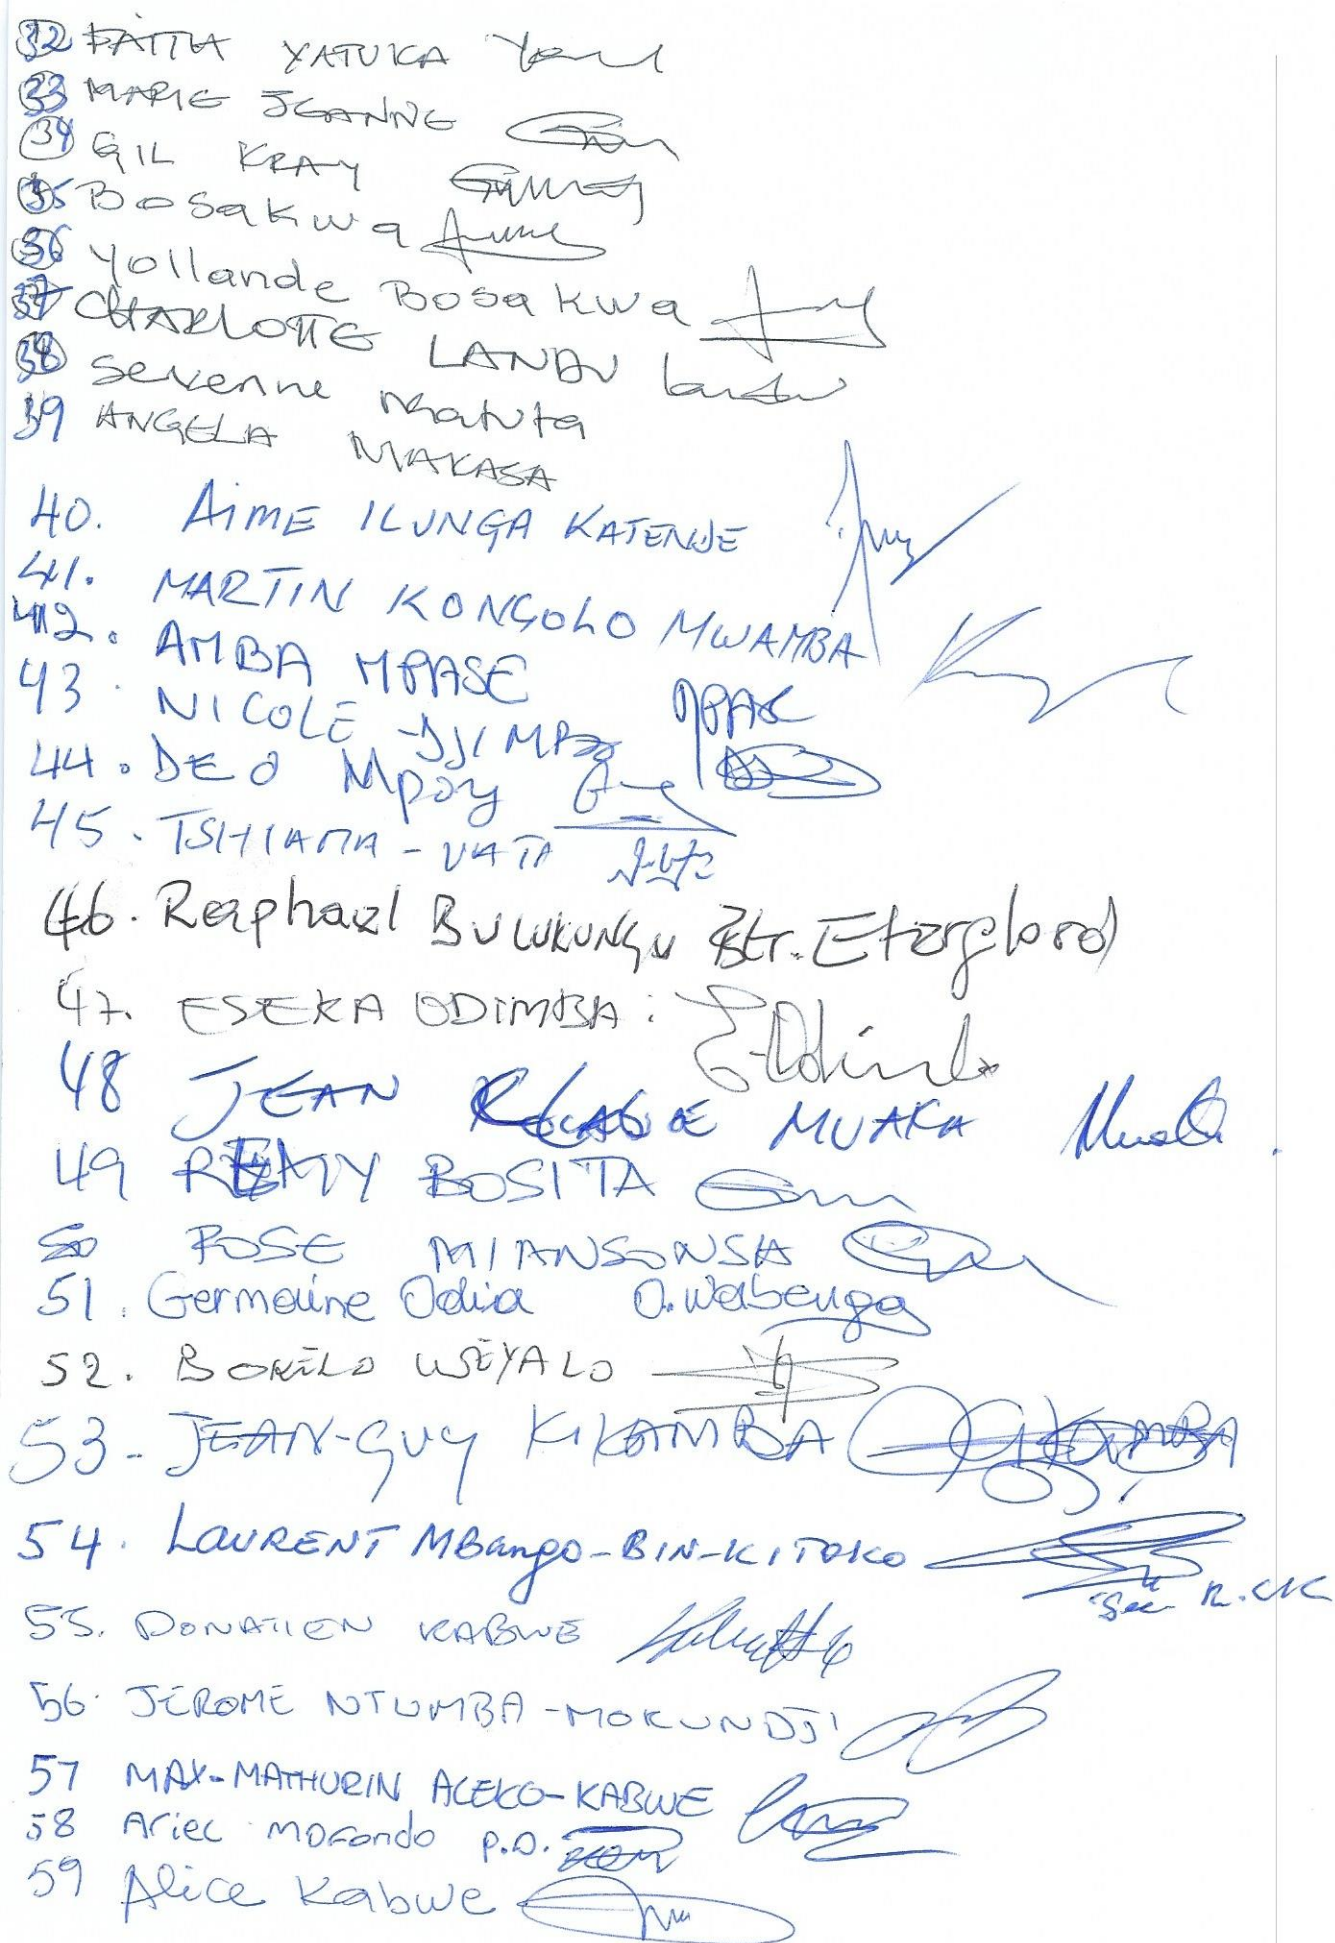 32 FAITHA YATUKA
33 MARIE JEANNE
34 GIL KRAY
35 Bosakwa
36 Yollande Bosakwa
37 CHARLOTTE LANDU Landu
38 Severine Matuta
39 ANGELA MAKASA
40. AIME ILUNGA KATENDE
41. MARTIN KONGOLO MWAMBA
42. AMBA MPASE
43 NICOLE DJIMBO
44. DEO Mpoy
45. TSHIAMA-VATA
46. Raphael BULUKUNGU
47. ESEKA ODIMBA:
48 JEAN CLAUDE MUAKA
49 REMY BOSITA
50 ROSE MIANSONSA
51. Germaine Odia O. Wabenga
52. BOKILO WEYALO
53- JEAN-GUY KIKAMBA KIKAMBA
54. LAURENT MBango-BIN-KITOKO
55. DONATIEN KABWE
56. JÉROME NTUMBA-MOKUNDJI
57 MAX-MATHURIN ACEKO-KABWE
58 Ariec MOFONDO P.O.
59 Alice Kabwe